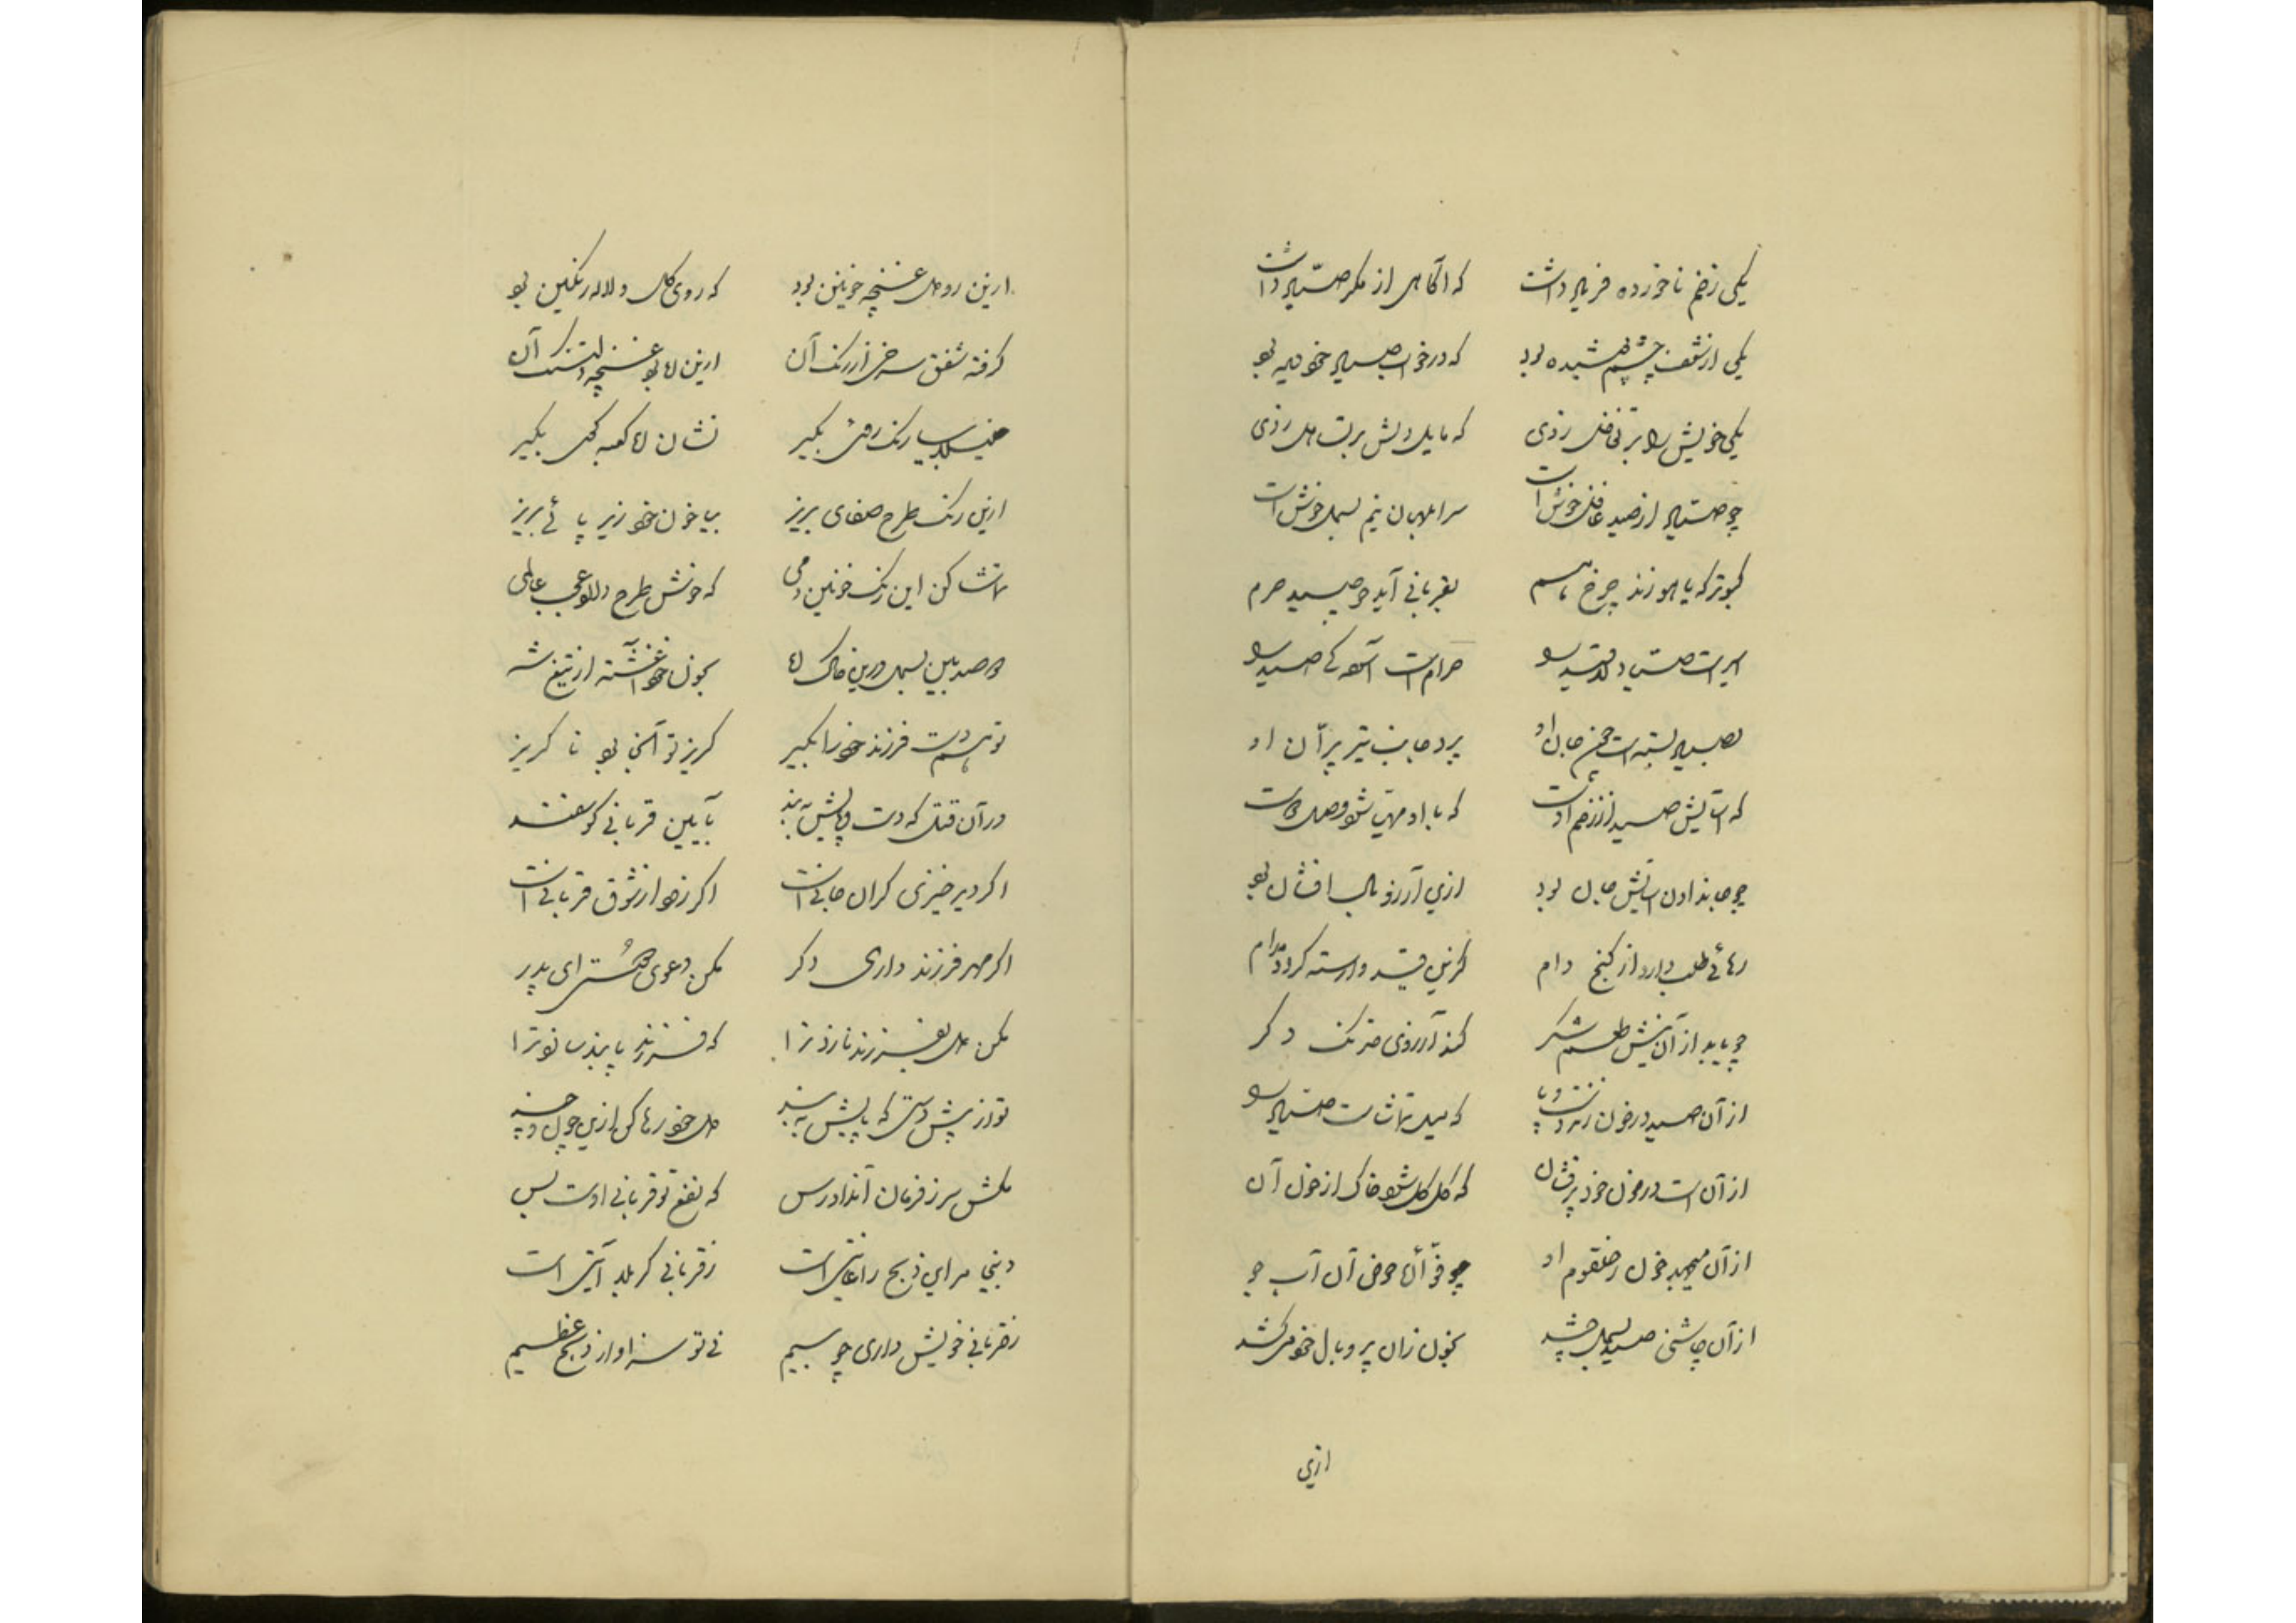 یکی زخم ناخورده فریاد داشت که آگاهی از مکر صیّاد داشت
یکی از شعف چشم پوشیده بود که در خواب صیاد خود دیده بود
یکی خویش را بر تغافل زدی که مایل دلش بر تساهل زدی
چو صیّاد از صید غافل خوش است سراپای آن نیم بسمل خوش است
کبوتر که یاهو زند چرخ هم بقربانی آید چو صید حرم
اسیر است صیاد را حرام است آهو که صید
بصیاد بسته است چون جان او پرد جانب تیر پرّان او
که آسایش صید از زخم اوست که با او مهیّا شود وصل دوست
چو جان دادن آسایش جان بود ازین آرزو بال افشان بود
رهائی طلب دارد از کنج دام کزین قید وارسته گردد مدام
چو یابد از آن نیش طعم شکر کند آرزوی خدنگ دگر
از آن صید در خون زند دست و پا که میل تماشاست صیّاد را
از آن است در خون خود پرفشان که گل گل شود خاک از خون آن
از آن میجهد خون ز حلقوم او چو فوّاره از حوض آن آب جو
از آن چاشنی صید بسمل چشد بخون زان پر و بال خود میکشد
ازین
ازین رو دل غنچه خونین بود که روی گل و لاله رنگین بود
گرفته شفق سرخی از رنگ آن ازین ره بود غنچه دلتنگ آن
خلیلا بیا رنگ بگیر نشان ره کعبهٔ بگیر
ازین رنگ طرح صفای بریز بیا خون خود زیر پائے بریز
تماشا کن این رنگ خونین دمی که خونش طرح دارد عجب عالمی
دو صد بین بسمل درین خاک ره بخون خود آغشته از تیغ شه
تو هم دست فرزند خود را بگیر گریز تو آنجا بود ناگریز
در آن قتلگه دست و پایش ببند بآیین قربانی گوسفند
اگر دیر خیزی گران جانی است اگر زود از شوق قربانی است
اگر مهر فرزند داری دگر مکن دعوی دوستی ای پدر
مکن دل بفرزند نازد ترا که فرزند پابند سازد ترا
تو از پیش دستی که پایش ببند دل خود رها کن ازین چون و چند
مکش سر ز فرمان آن دادرس که نفع تو قربانی اوست بس
دینی مر این ذبح را غایتی است ز قربانی کربلا آیتی است
ز قربانی خویش داری چو بیم نئی تو سزاوار ذبح عظیم